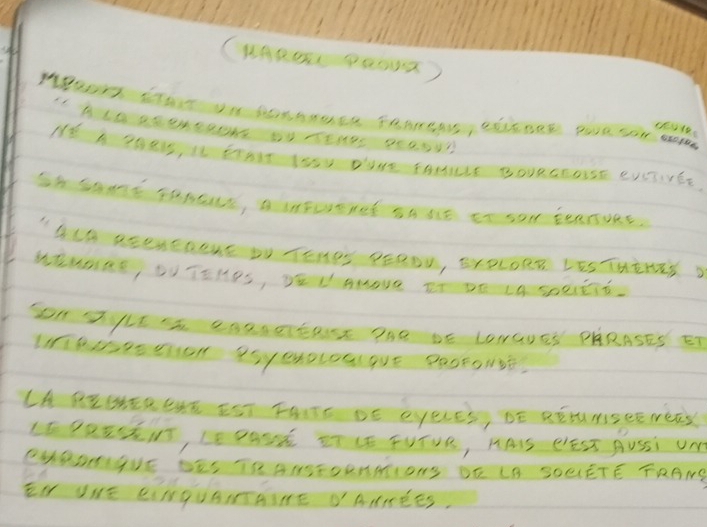 (MARCEL PROUST)
MPROUST ÉTAIT UN ROMANCIER FRANÇAIS, CÉLÈBRE POUR SON OEUVRE
"A LA RECHERCHE DU TEMPS PERDU"
NÉ A PARIS, IL ÉTAIT ISSU D'UNE FAMILLE BOURGEOISE CULTIVÉE.
SA SANTÉ FRAGILE, A INFLUENCÉ SA VIE ET SON ÉCRITURE.
"A LA RECHERCHE DU TEMPS PERDU, EXPLORE LES THÈMES D
MÉMOIRE, DU TEMPS, DE L'AMOUR ET DE LA SOCIÉTÉ.
SON STYLE SE CARACTÉRISE PAR DE LONGUES PHRASES ET
INTROSPECTION PSYCHOLOGIQUE PROFONDE.
LA RECHERCHE EST FAITE DE CYCLES, DE RÉMINISCENCES
LE PRÉSENT, LE PASSÉ ET LE FUTUR, MAIS C'EST AUSSI UN
CHRONIQUE DES TRANSFORMATIONS DE LA SOCIÉTÉ FRANÇ
EN UNE CINQUANTAINE D'ANNÉES.